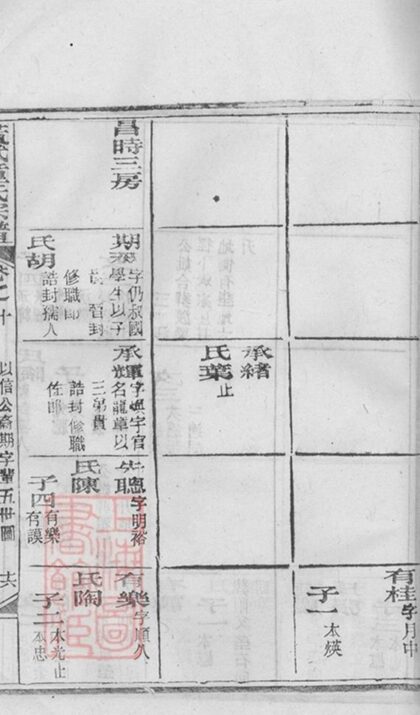 有桂字月中
子一本煐
承緒
氏葉止
昌時三房
期
字仍叔國
學生以子
貴封
修職郎
氏胡
誥封孺人
承輝
名龍章以
三弟貴
誥封修職
佐郎
先聰
字明裕
氏陳
子四有樂
有謨
有樂字順八
氏陶
子二本光止
本忠
以信公裔期字輩五世圖